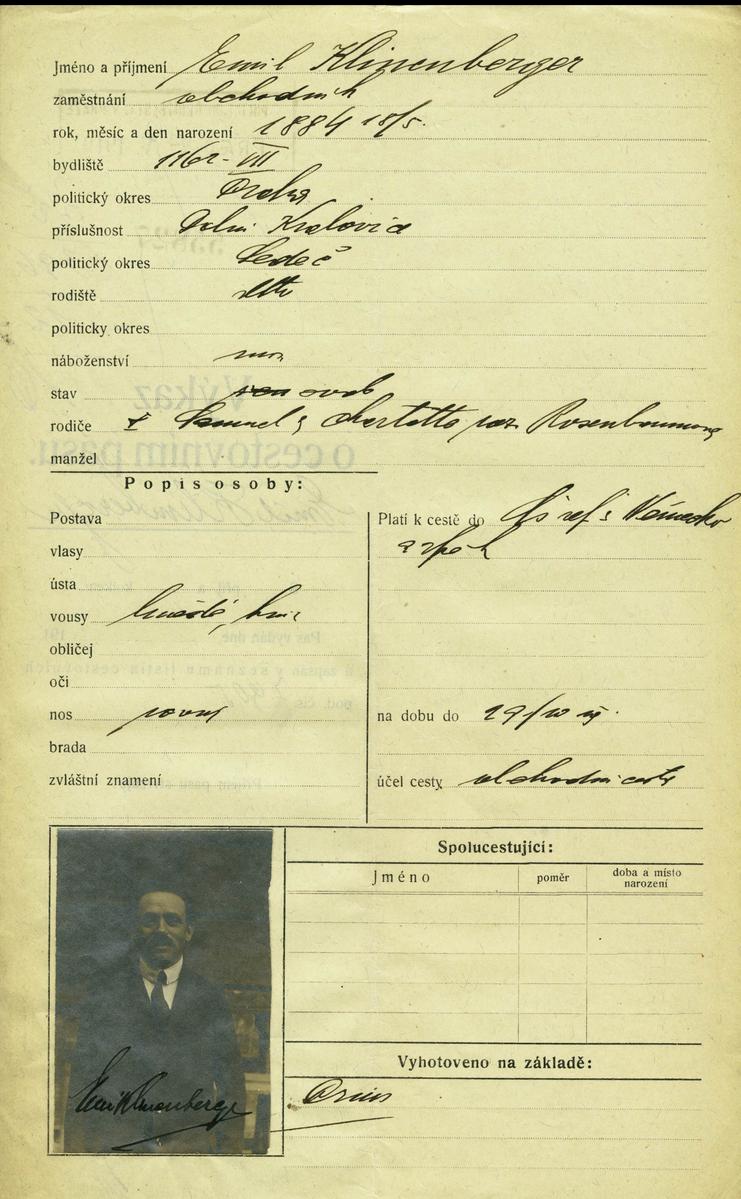 Jméno a příjmení Emil Klinenberger
zaměstnání obchodník
rok, měsíc a den narození 1884 18/5.
bydliště 1162 - VII
politický okres Praha
příslušnost Dolní Kralovice
politický okres Ledeč
rodiště detto
politicky okres
náboženství
stav svob
rodiče Samuel & roz. Rosenbaumova
manžel
Popis osoby:
Postava
vlasy
ústa
vousy hnědé,
obličej
oči
nos rovný
brada
zvláštní znamení
Platí k cestě do Německo
a zpět
na dobu do 29/10
účel cesty obchodní cesta
Spolucestující:
Jméno poměr doba a místo narození
Vyhotoveno na základě:
Emil Klinenberger